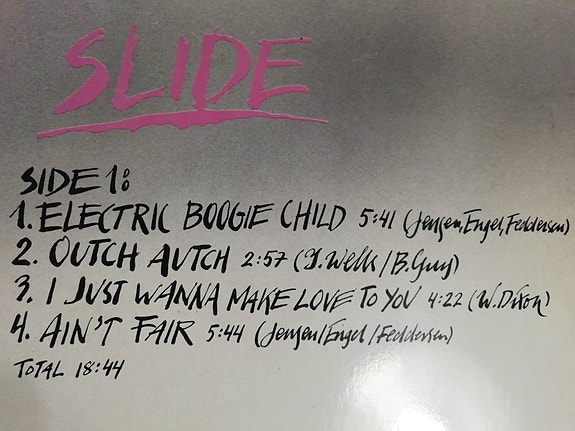 SLIDE
SIDE 1:
1. ELECTRIC BOOGIE CHILD 5:41 (Jensen, Engel, Feddersen)
2. OUTCH AUTCH 2:57 (J. Wells / B. Guy)
3. I JUST WANNA MAKE LOVE TO YOU 4:22 (W. Dixon)
4. AIN'T FAIR 5:44 (Jensen / Engel / Feddersen)
TOTAL 18:44